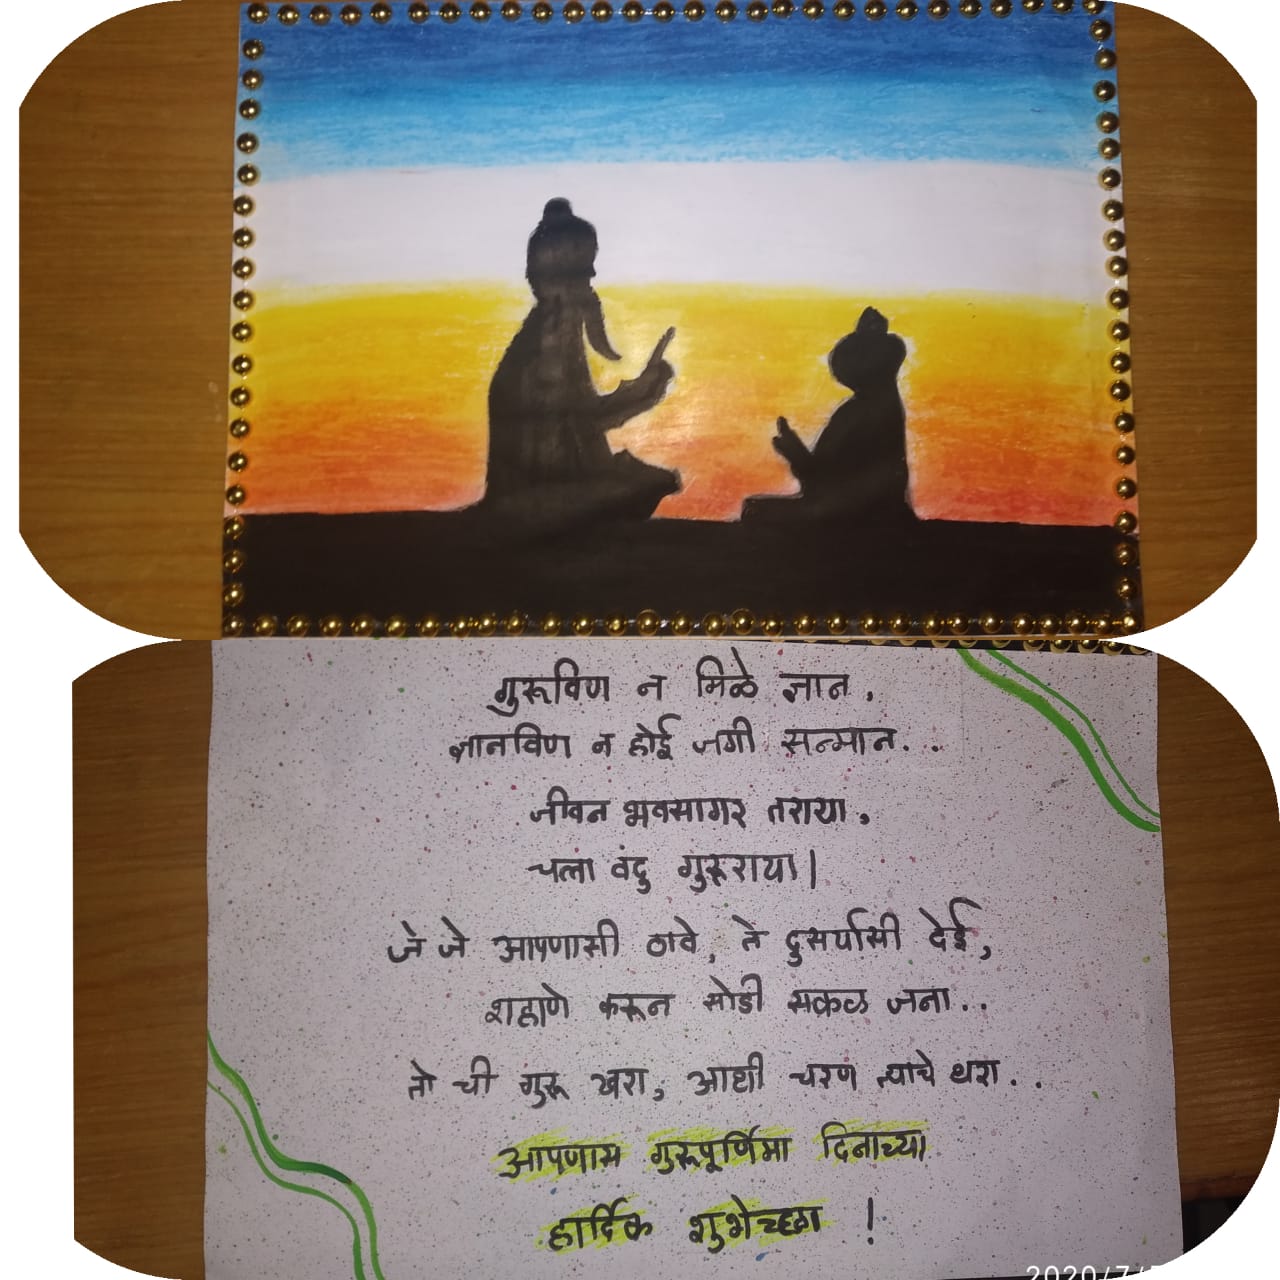 गुरूविण न मिळे ज्ञान,
ज्ञानविण न होई जगी सन्मान..
जीवन भवसागर तराया,
चला वंदु गुरूराया|
जे जे आपणासी ठावे, ते दुसर्यासी देई,
शहाणे करून सोडी सकळ जना..
तो ची गुरू खरा, आधी चरण त्याचे धरा..
आपणास गुरूपूर्णिमा दिनाच्या
हार्दिक शुभेच्छा !
2020/7/5